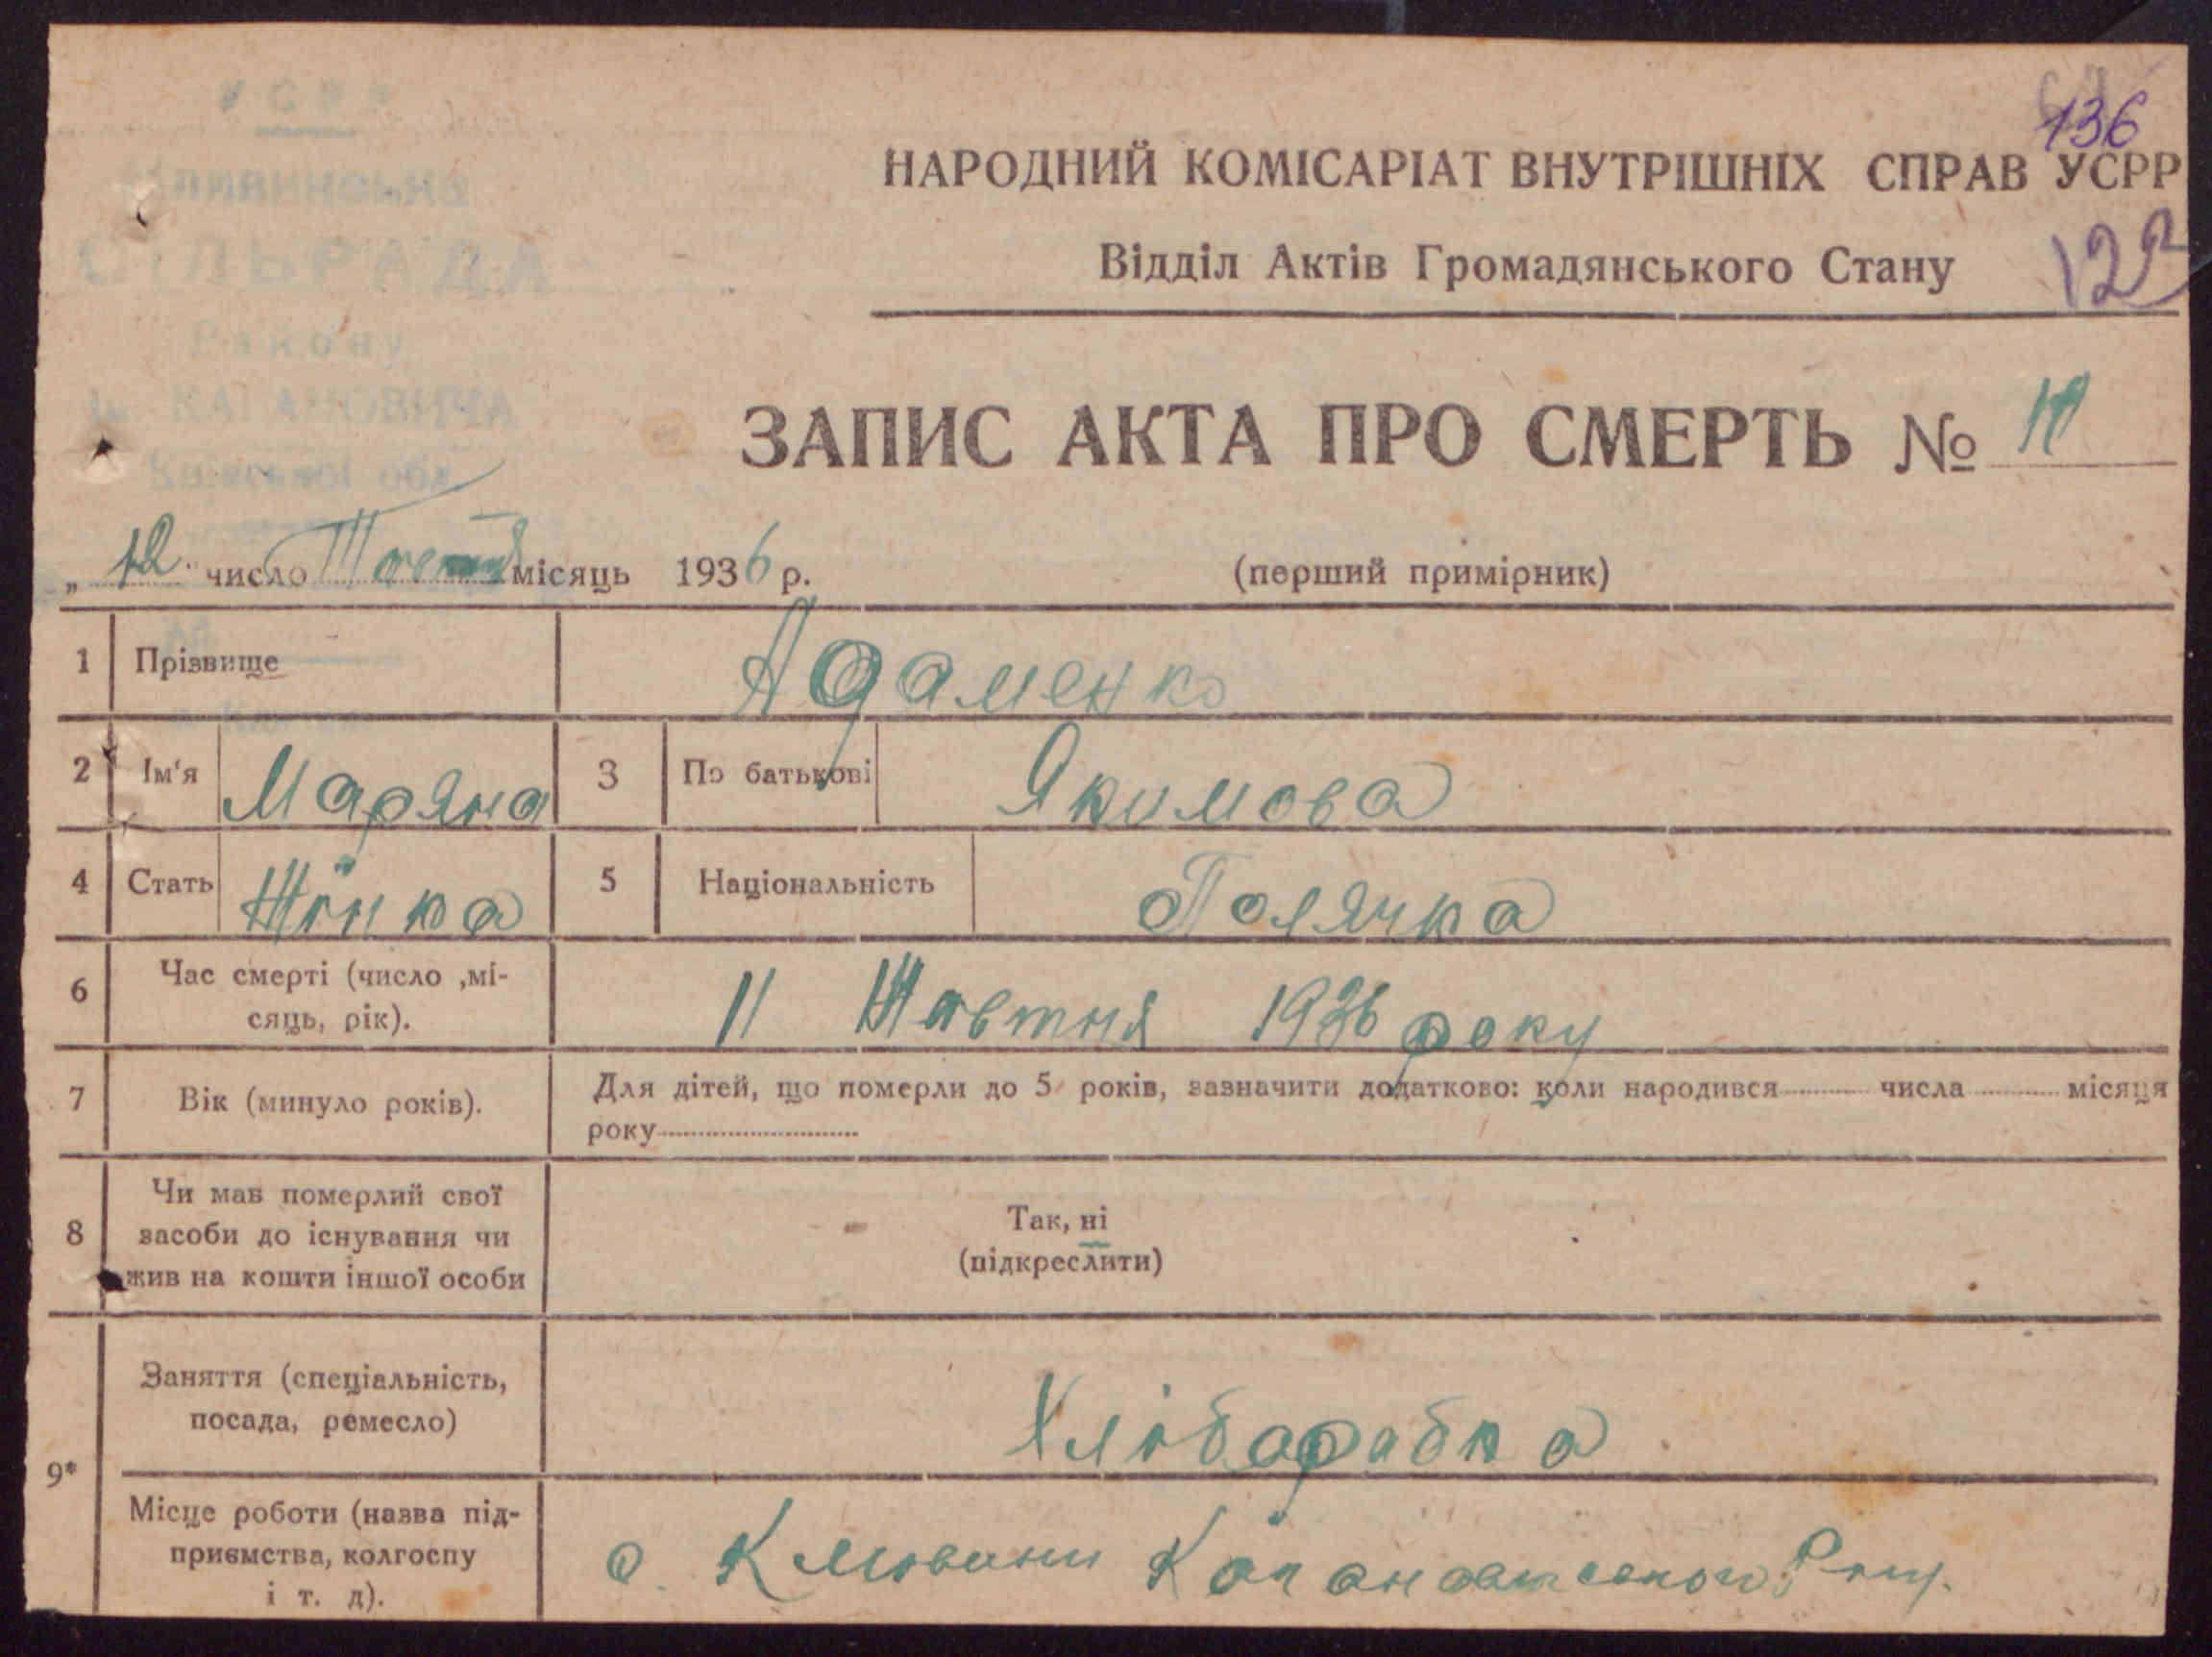 УСРР
СІЛЬРАДА
136
НАРОДНИЙ КОМІСАРІАТ ВНУТРІШНІХ СПРАВ УСРР
Відділ Актів Громадянського Стану
122
ЗАПИС АКТА ПРО СМЕРТЬ №
„ 12 " число місяць 1936 р.
(перший примірник)
1 Прізвище Адаменко
2 Ім'я Маряна 3 По батькові Якимова
4 Стать Жінка 5 Національність Полячка
6 Час смерті (число ,мі-
сяць, рік). 11 Жовтня 1936 року
7 Вік (минуло років). Для дітей, що померли до 5 років, зазначити додатково: коли народився числа місяця
року
8 Чи мав померлий свої
засоби до існування чи
жив на кошти іншої особи
Так, ні
(підкреслити)
9*
Заняття (спеціальність,
посада, ремесло) Хлібарабка
Місце роботи (назва під-
приємства, колгоспу
і т. д). с.